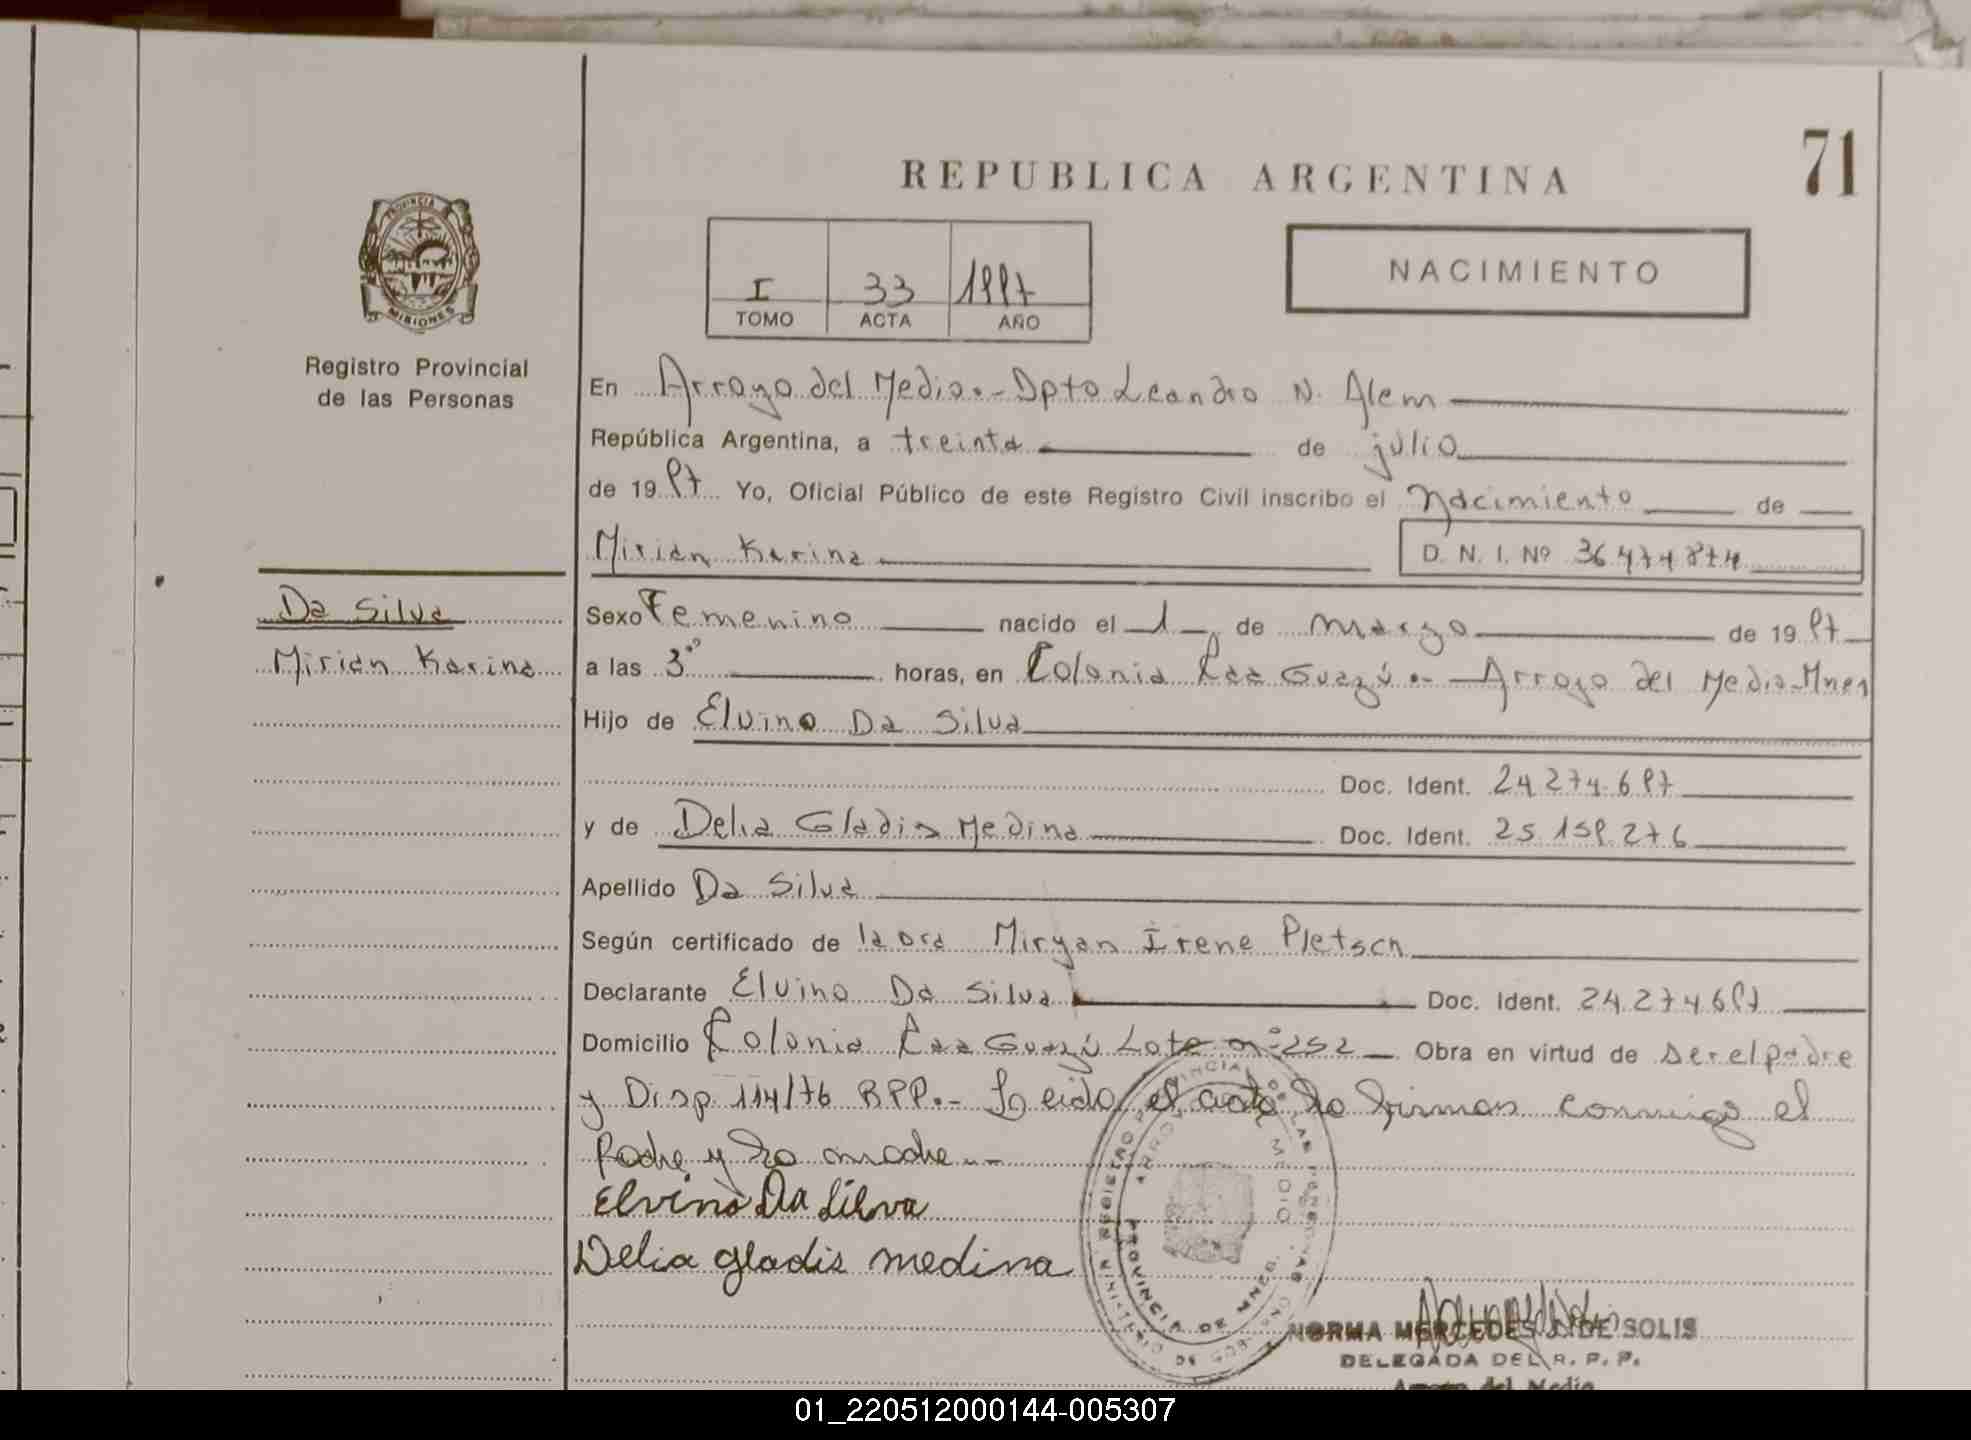 71
REPUBLICA ARGENTINA
NACIMIENTO
I 33 1997
TOMO ACTA AÑO
PROVINCIA
MISIONES
Registro Provincial
de las Personas
En Arroyo del Medio.- Dpto Leandro N. Alem
República Argentina, a treinta de julio
de 1997 Yo, Oficial Público de este Registro Civil inscribo el Nacimiento de
Mirian Karina D. N. I. Nº 36.474.874
Da Silva
Mirian Karina
Sexo Femenino nacido el 1 de marzo de 1997
a las 3 horas, en Colonia Caa Guazú.- Arroyo del Medio-Mnes
Hijo de Elvino Da Silva
Doc. Ident. 24.274.697
y de Delia Gladis Medina Doc. Ident. 25.159.276
Apellido Da Silva
Según certificado de la Dra Miryan Irene Pletsch
Declarante Elvino Da Silva Doc. Ident. 24.274.697
Domicilio Colonia Caa Guazú Lote nº 252 Obra en virtud de ser el padre
y Disp. 114/76 RPP.- Leida el acta la firman conmigo el
Padre y la madre.-
Elvino Da Silva
Delia gladis medina
REGISTRO PROVINCIAL DE LAS PERSONAS
ARROYO DEL MEDIO
PROVINCIA DE MNES.
NORMA MERCEDES J. DE SOLIS
DELEGADA DEL R. P. P.
Arroyo del Medio
01_220512000144-005307